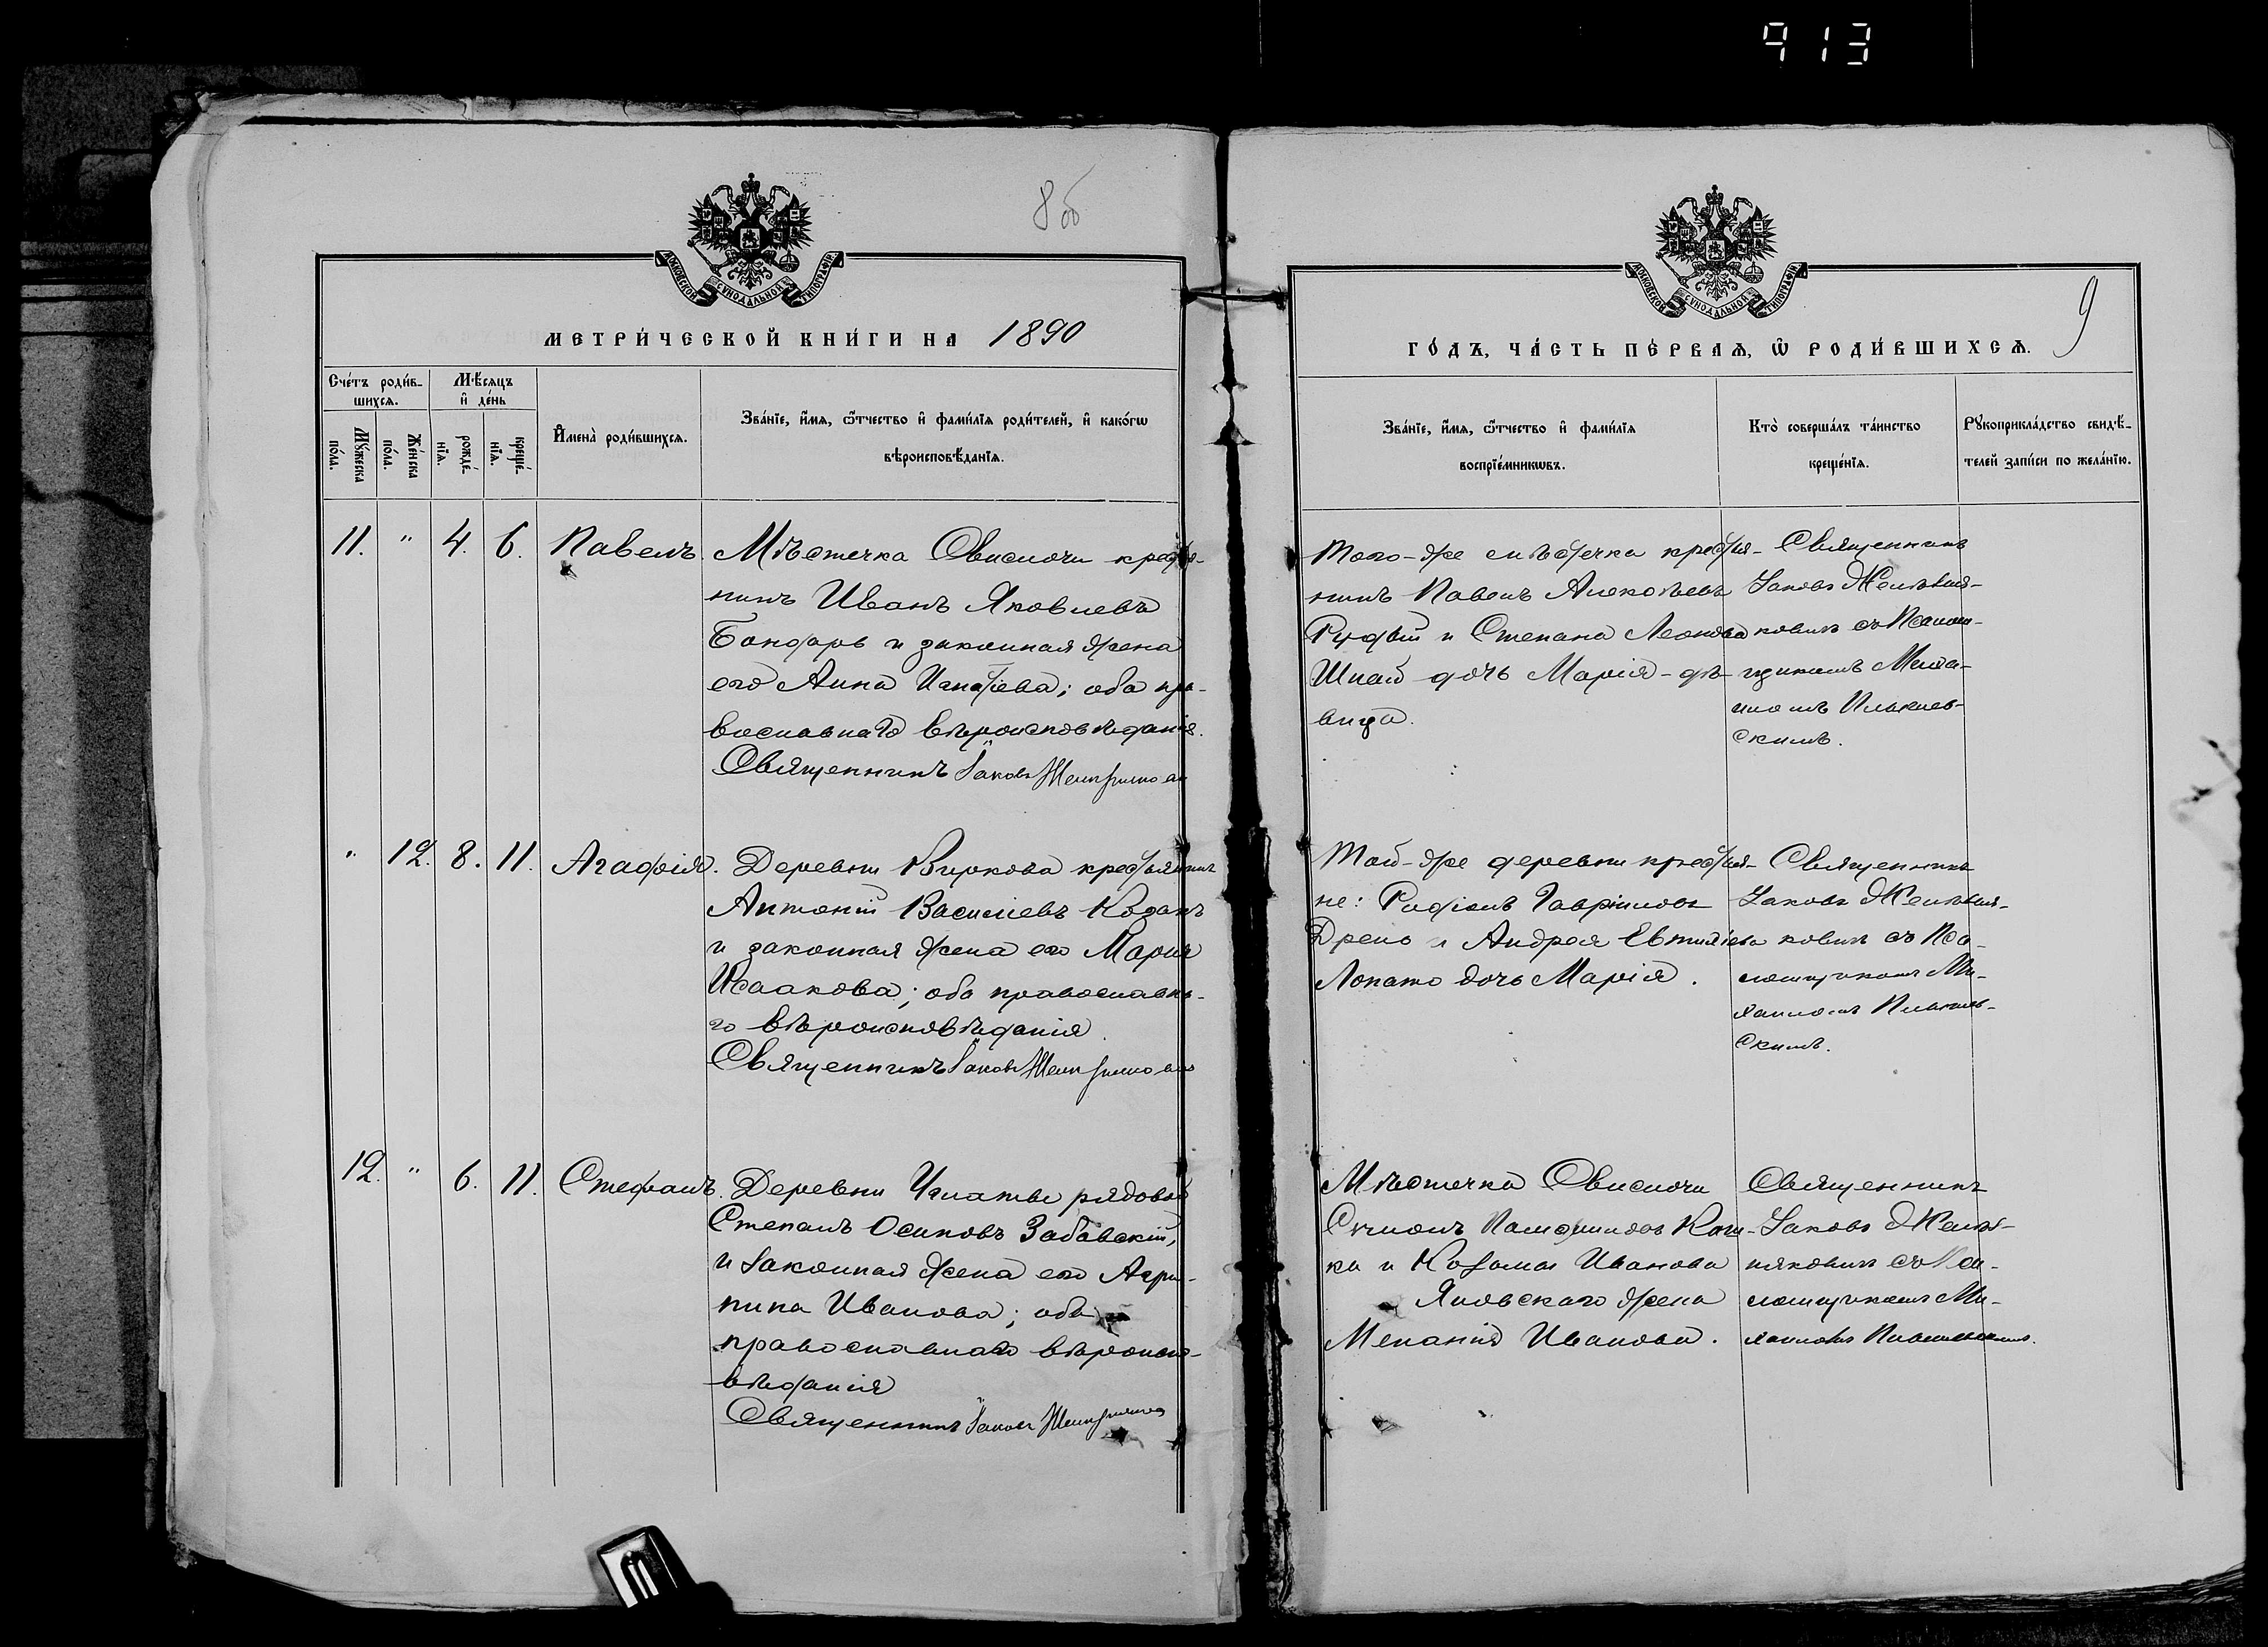 913
8 об
МОСКОВСКОЙ СѴНОДАЛЬНОЙ ТИПОГРАФІИ.
МЕТРИ́ЧЕСКОЙ КНИ́ГИ НА 1890
Сче́тъ роди́в-
шихсѧ.
Мꙋжеска
по́ла.
Же́нска
по́ла.
М҃ѣсѧцъ
и҆ де́нь
рожде́-
нїѧ.
креще́-
нїѧ.
И҆мена̀ роди́вшихсѧ.
Зва́нїе, и҆́мѧ, ѻ҆́тчество и҆ фами́лїѧ роди́телей, и҆ како́гѡ
вѣроисповѣ́данїѧ.
11. " 4. 6. Павелъ.
Мѣстечка Свислочи крестья-
нинъ Иванъ Яковлевъ
Бондарь и законная жена
его Анна Игнатіева; оба пра-
вославнаго вѣроисповѣданія.
Священникъ Іаковъ
" 12. 8. 11. Агафія.
Деревни Виркова крестьянинъ
Антоній Василіевъ Козакъ
и законная жена его Марія
Исаакова; оба православна-
го вѣроисповѣданія.
Священникъ Іаковъ
12. " 6. 11. Стефанъ.
Деревни рядовой
Степанъ Осиповъ Забавскій,
и законная жена его Агри-
пина Иванова; оба
православнаго вѣроиспо-
вѣданія
Священникъ Іаковъ
МОСКОВСКОЙ СѴНОДАЛЬНОЙ ТИПОГРАФІИ.
9
ГО́ДЪ, ЧА́СТЬ ПЕ́РВАѦ, Ѡ҆ РОДИ́ВШИХСѦ.
Зва́нїе, и҆́мѧ, ѻ҆́тчество и҆ фами́лїѧ
воспрїе́мникѡвъ.
Кто̀ соверша́лъ та́инство
креще́нїѧ.
Рꙋкоприкла́дство свидѣ́-
телей за́писи по жела́нїю.
Того-же мѣстечка крестья-
нинъ Павелъ Алексѣевъ
Рудый и Степана Леонова
дочь Марія - дѣ-
вица.
Священникъ
Іаковъ Желѣзня-
ковичъ съ Псалом-
щикомъ Миха-
иломъ
скимъ.
Той-же деревни крестья-
не: Родіонъ Гавріиловъ
Дрень и Андрея Евтихіева
Лопато дочь Марія.
Священникъ
Іаковъ Желѣзня-
ковичъ съ Пса-
ломщикомъ Ми-
хаиломъ
скимъ.
Мѣстечка Свислочи
Сѵмонъ
ка и Козьмы Иванова
Яновскаго жена
Меланія Иванова.
Священникъ
Іаковъ Желѣз-
няковичъ съ Пса-
ломщикомъ Ми-
хаиломъ